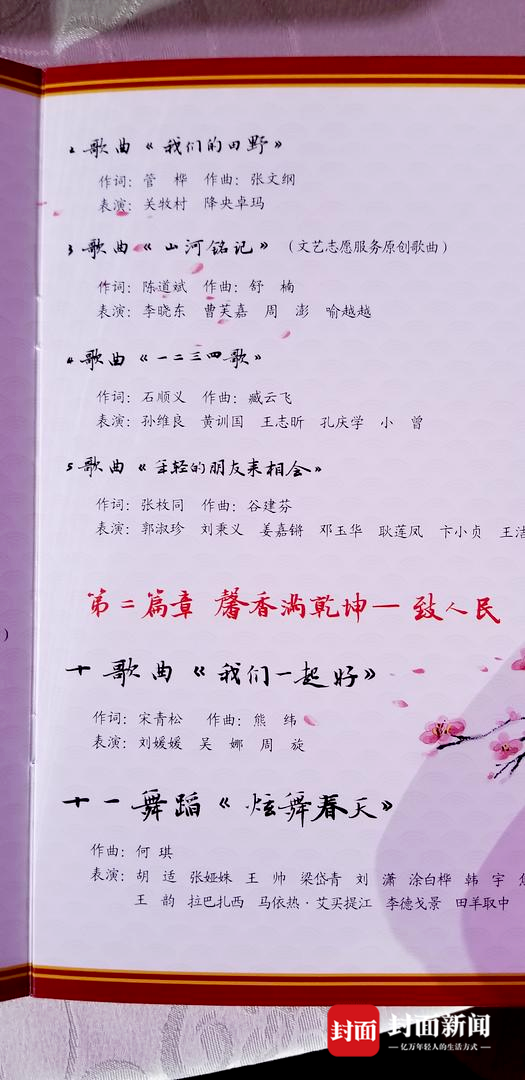 2 歌曲《我们的田野》
作词：管　桦　作曲：张文纲
表演：关牧村　降央卓玛
3 歌曲《山河铭记》（文艺志愿服务原创歌曲）
作词：陈道斌　作曲：舒　楠
表演：李晓东　曹芙嘉　周　澎　喻越越
4 歌曲《一二三四歌》
作词：石顺义　作曲：臧云飞
表演：孙维良　黄训国　王志昕　孔庆学　小　曾
5 歌曲《年轻的朋友来相会》
作词：张枚同　作曲：谷建芬
表演：郭淑珍　刘秉义　姜嘉锵　邓玉华　耿莲凤　卞小贞　王洁
第二篇章 馨香满乾坤—致人民
十 歌曲《我们一起好》
作词：宋青松　作曲：熊　纬
表演：刘媛媛　吴　娜　周　旋
十一 舞蹈《炫舞春天》
作曲：何 琪
表演：胡　适　张娅姝　王　帅　梁岱青　刘　潇　涂白桦　韩　宇
王　韵　拉巴扎西　马依热·艾买提江　李德戈景　田羊取中
）
封面 封面新闻
— 亿万年轻人的生活方式 —